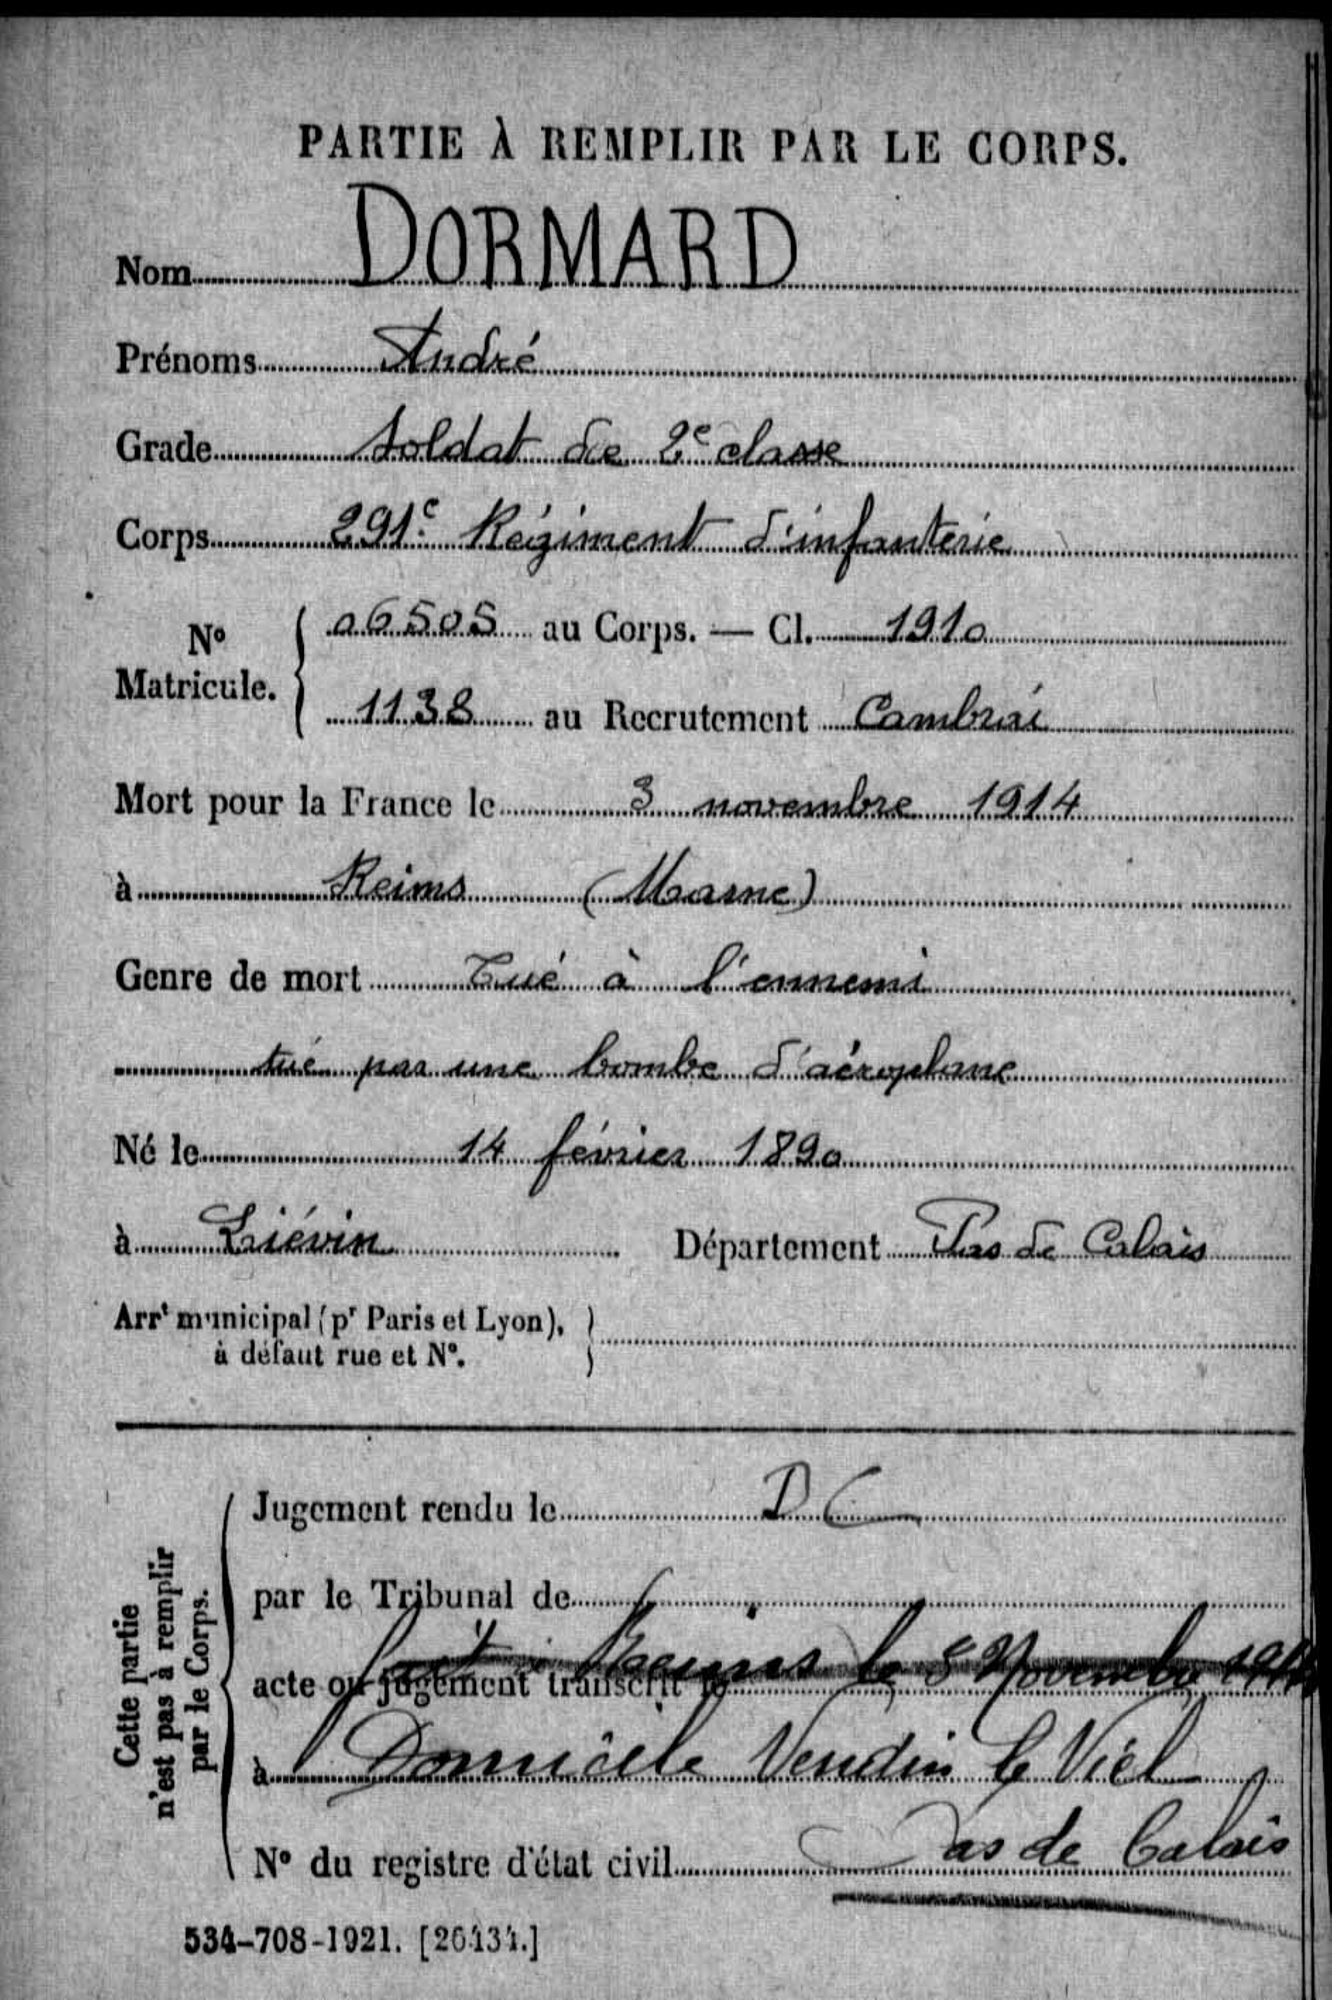 PARTIE À REMPLIR PAR LE CORPS.
Nom DORMARD
Prénoms André
Grade soldat de 2e classe
Corps 291e Régiment d'infanterie
No Matricule. { 06505 au Corps. — Cl. 1910
1138 au Recrutement Cambrai
Mort pour la France le 3 novembre 1914
à Reims (Marne)
Genre de mort Tué à l'ennemi
tué par une bombe d'aéroplane
Né le 14 février 1890
à Liévin Département Pas de Calais
Arrt municipal (pr Paris et Lyon), }
à défaut rue et No.
Cette partie
n'est pas à remplir
par le Corps.
Jugement rendu le D C
par le Tribunal de
acte ou jugement transcrit le fait Reims le 8 Novembre
à Domicile Vendin le Viel
No du registre d'état civil Pas de Calais
534-708-1921. [26434.]